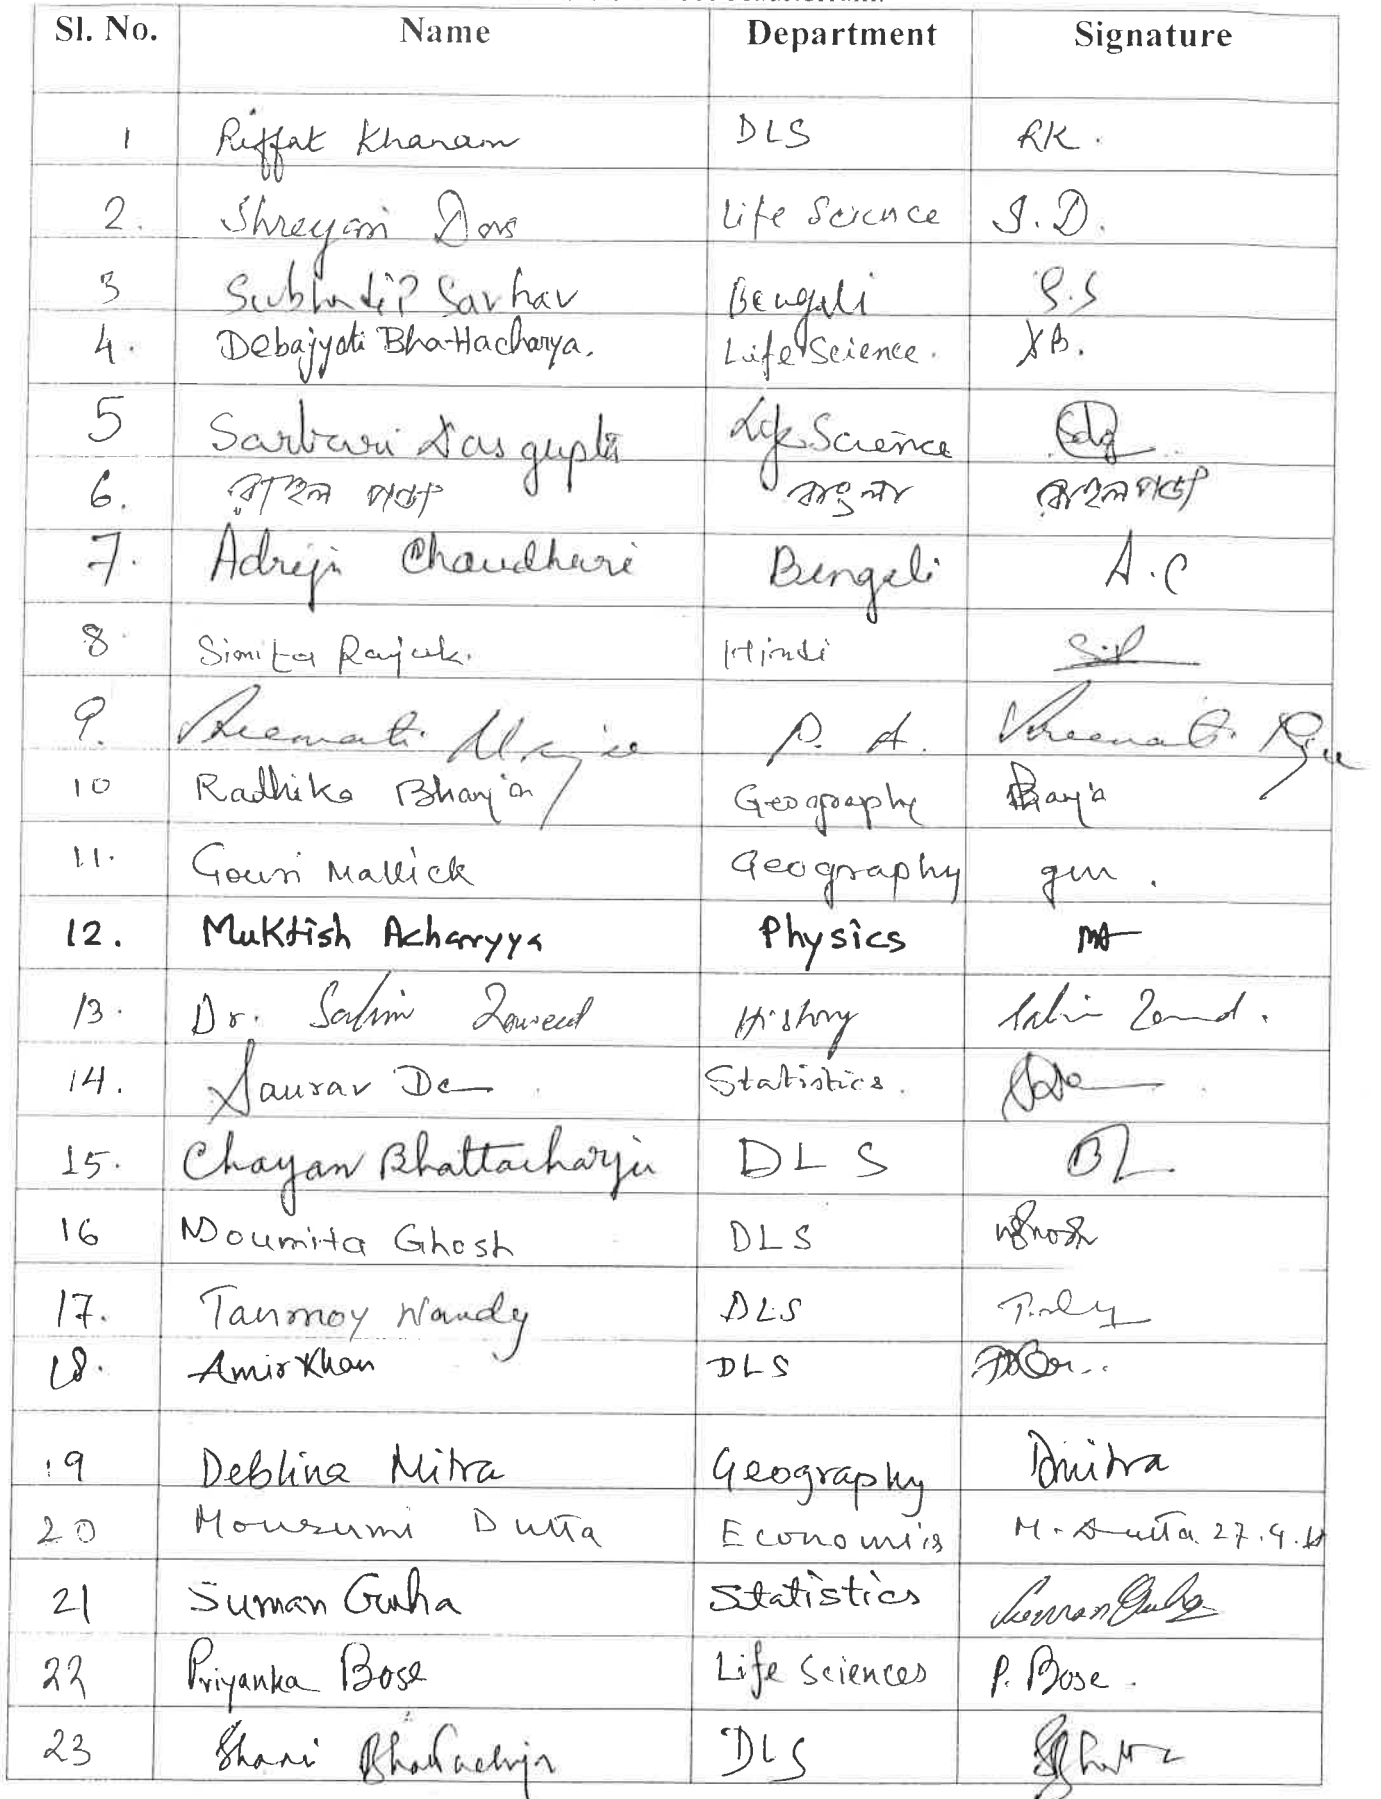 Sl. No. Name Department Signature
1 Riffat Khanam DLS RK.
2. Shreyasi Das Life Science S.D.
3 Subhadip Sarkar Bengali S.S
4. Debajyoti Bhattacharya. Life Science.
5 Sarbari Dasgupta Life Science Sdg
6. রাহুল পণ্ডা বাংলা রাহুল পণ্ডা
7. Adrija Chaudhuri Bengali A.C
8. Simita Rajak. Hindi
9. P. A.
10 Radhika Bhanja Geography Banja
11. Gouri Mallick Geography gm.
12. Muktish Acharyya Physics MA
13. Dr. Salim Zaweed History Salim Zaweed.
14. Saurav De Statistics.
15. Chayan Bhattacharjee DLS
16 Moumita Ghosh DLS
17. Tanmoy Nandy DLS
18. Amir Khan DLS
19 Deblina Mitra Geography Dmitra
20 Mousumi Dutta Economics M. Dutta 27.9.18
21 Suman Guha Statistics Suman Guha
22 Priyanka Bose Life Sciences P. Bose.
23 DLS